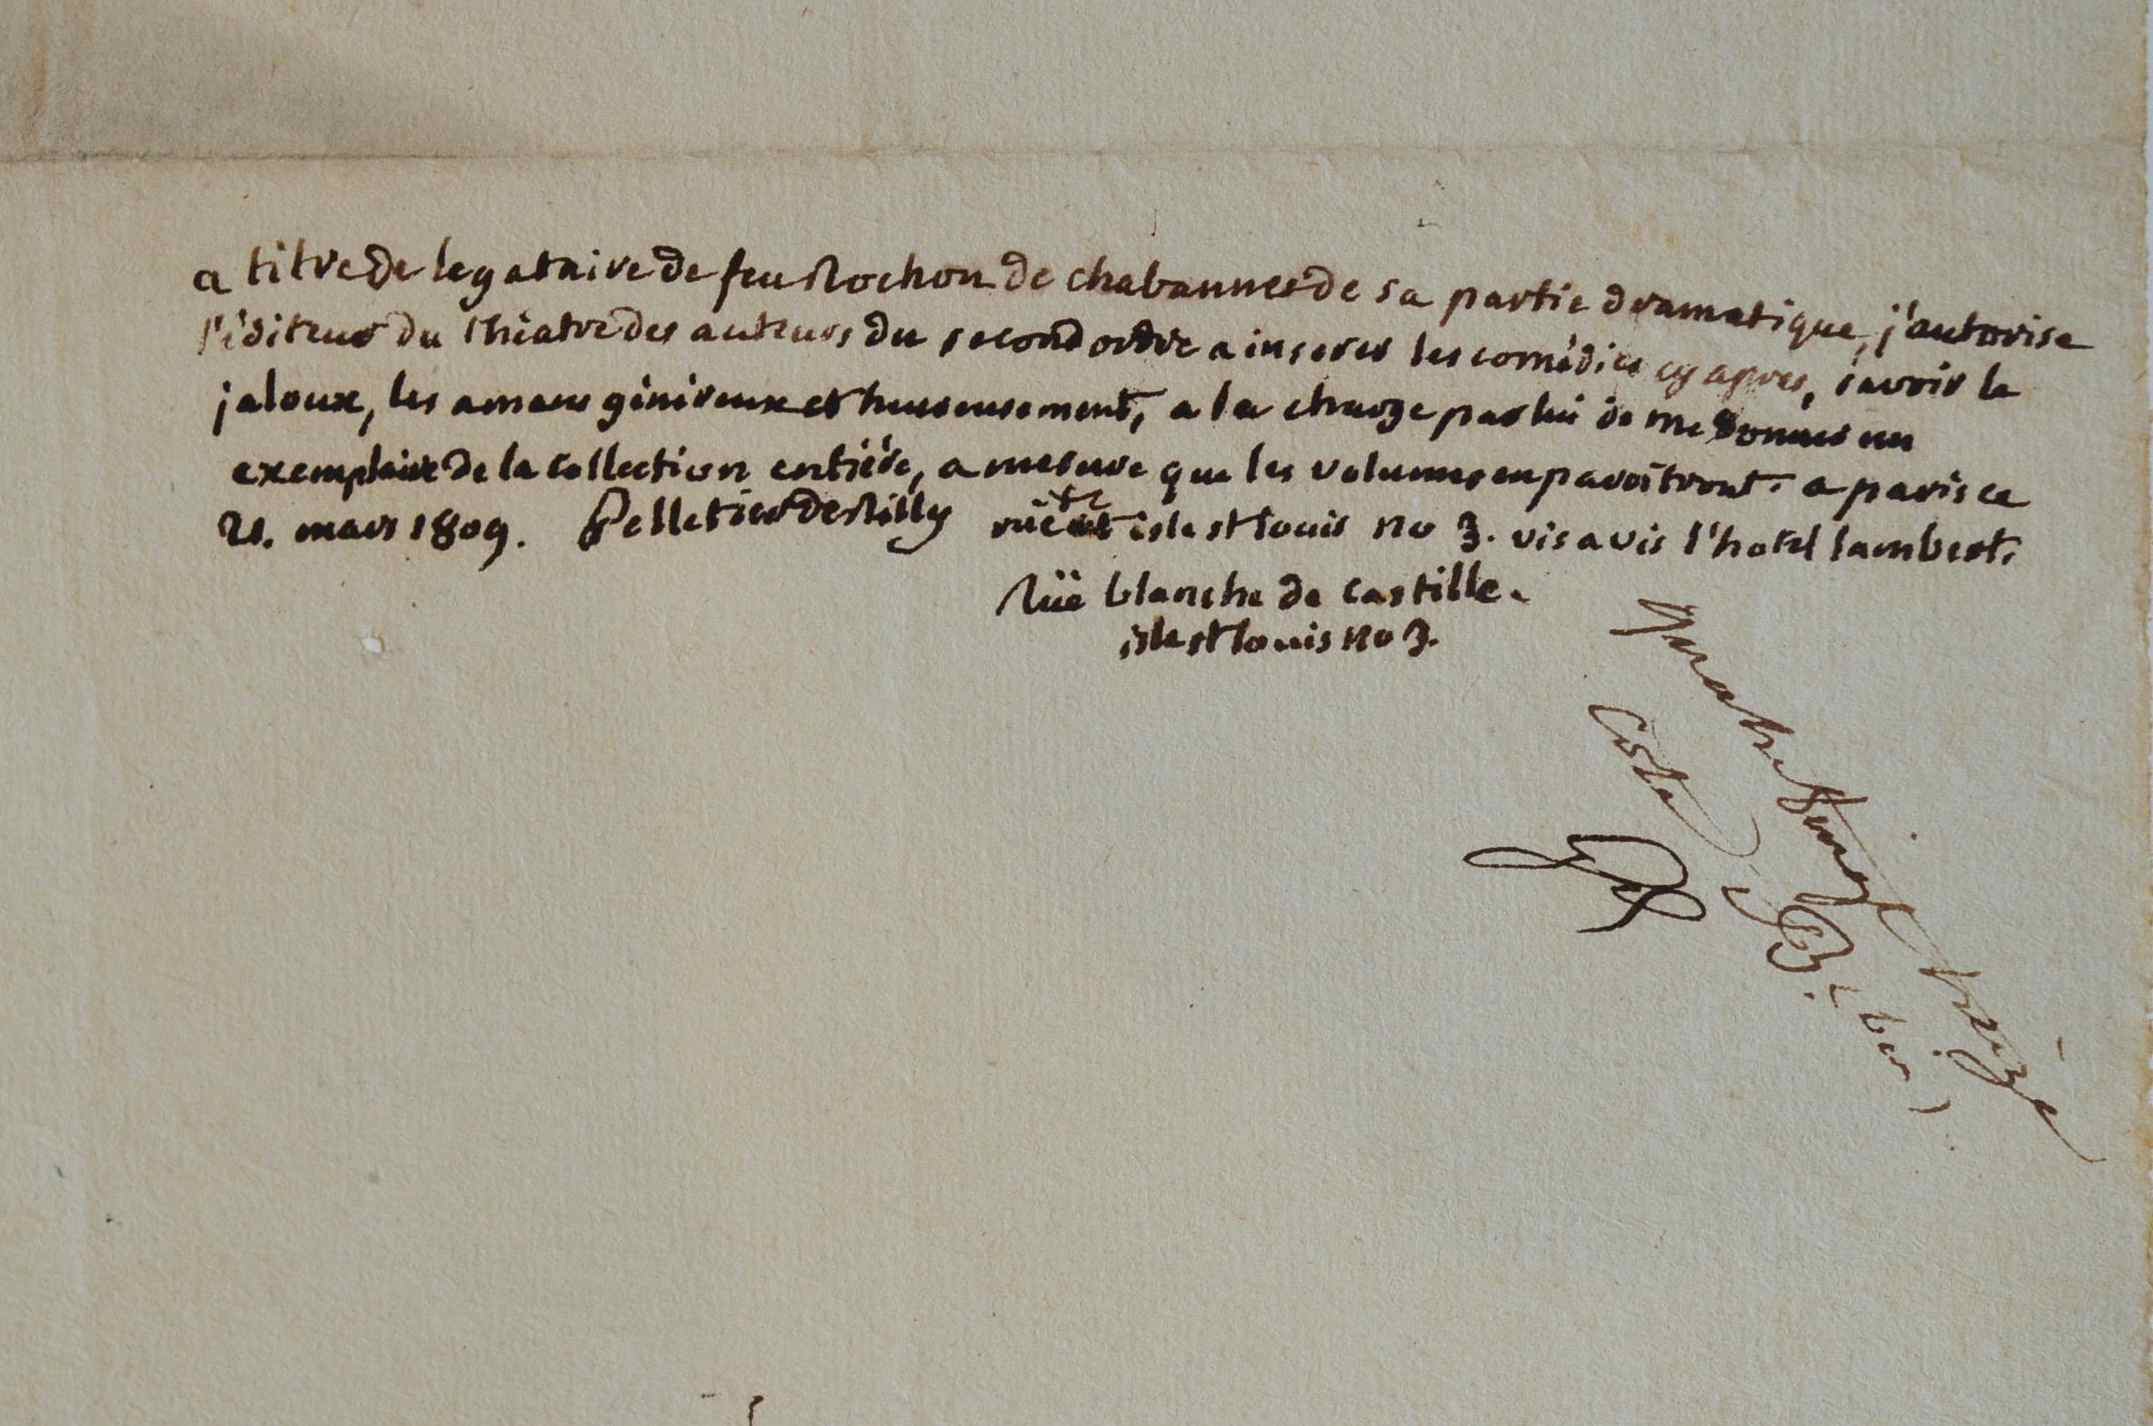 a titre de legataire de feu Rochon de chabannes de sa partie dramatique, j'autorise
l'éditeur du théatre des auteurs du second ordre a inserer les comédies cy apres, savoir le
jaloux, les amans généreux et heureusement, a la charge par lui de me donner un
exemplaire de la collection entière, a mesure que les volumes en paroîtront. a paris ce
21. mars 1809. Pelletier de Rilly rüe isle st louis no 3. vis a vis l'hotel lambert.
Rüe blanche de castille.
isle st louis no 3.
quatre vingt treize
Cote